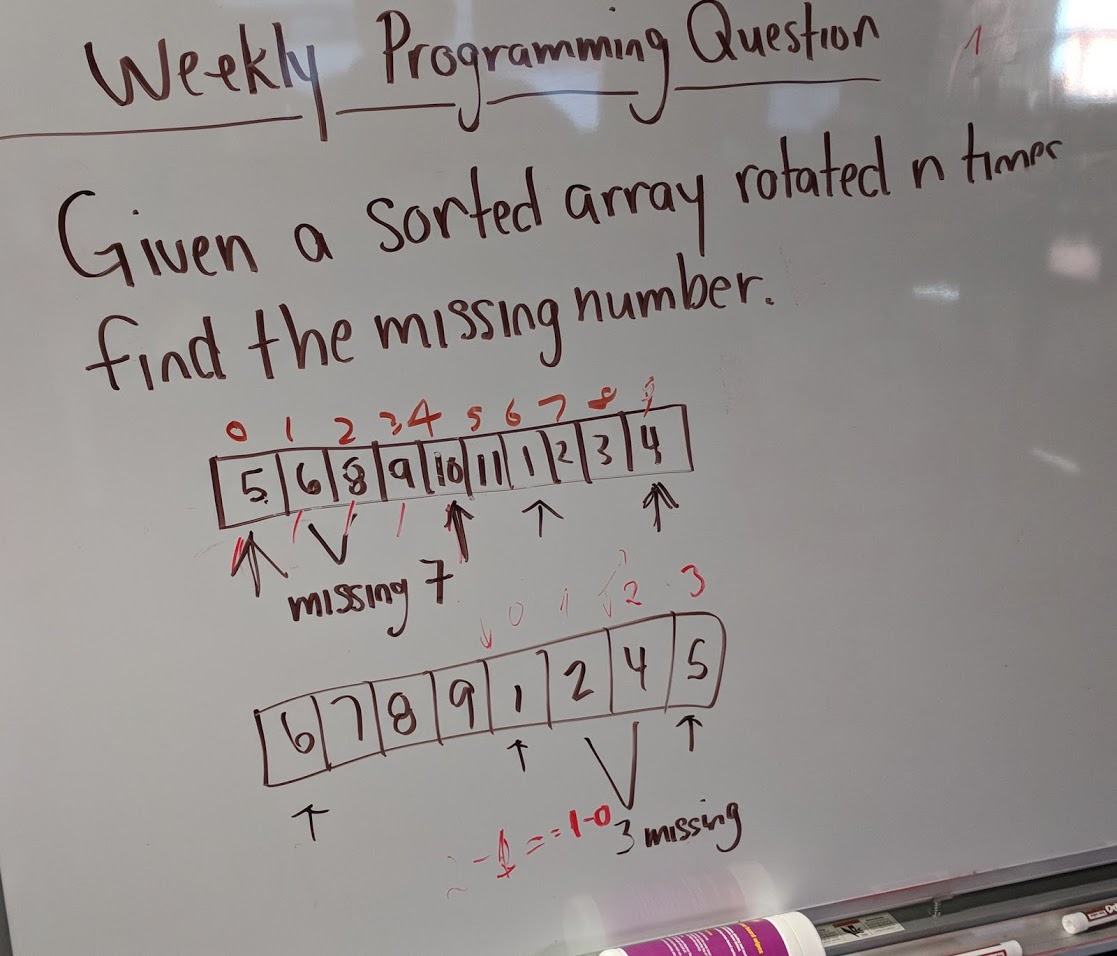 Weekly Programming Question
1
Given a sorted array rotated n times
find the missing number.
0 1 2 3 4 5 6 7 8 9
5 6 8 9 10 11 1 2 3 4
missing 7
0 1 2 3
6 7 8 9 1 2 4 5
3 missing